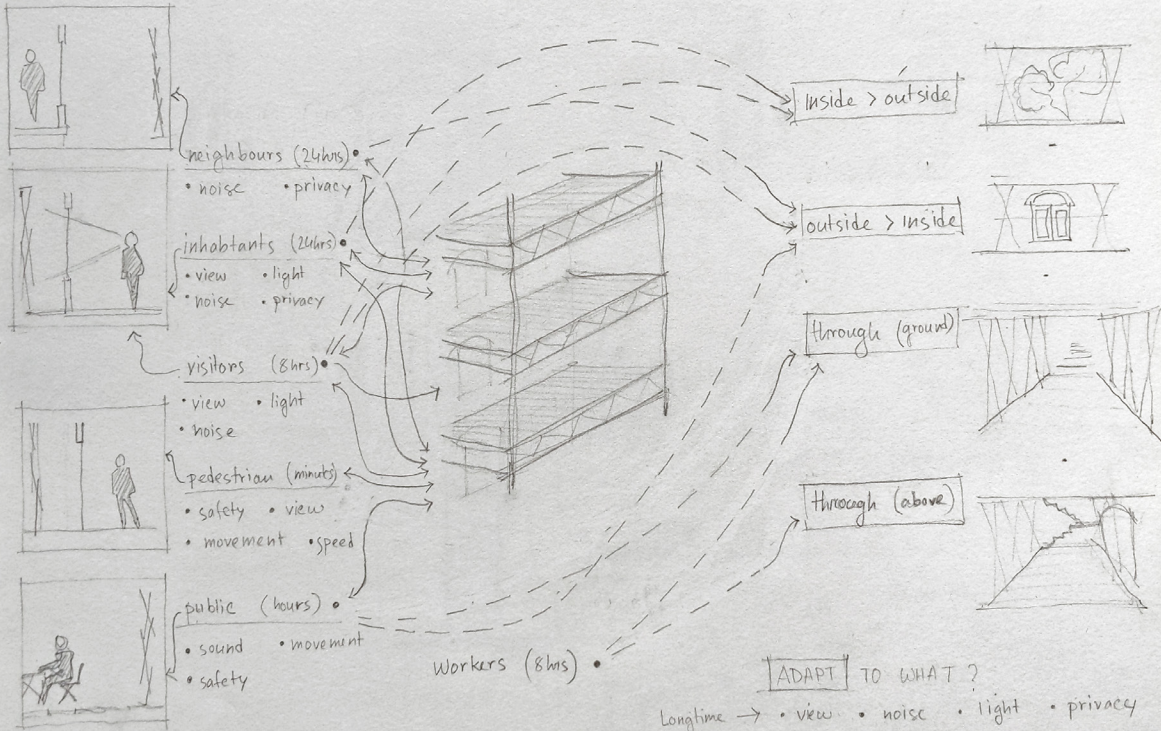 neighbours (24hrs)
• noise • privacy
inhabtants (24hrs)
• view • light
• noise • privacy
visitors (8hrs)
• view • light
• noise
pedestrian (minuts)
• safety • view
• movement • speed
public (hours)
• sound • movement
• safety
Workers (8hrs)
Inside > outside
outside > Inside
through (ground)
through (above)
ADAPT TO WHAT?
Longtime → • view • noise • light • privacy